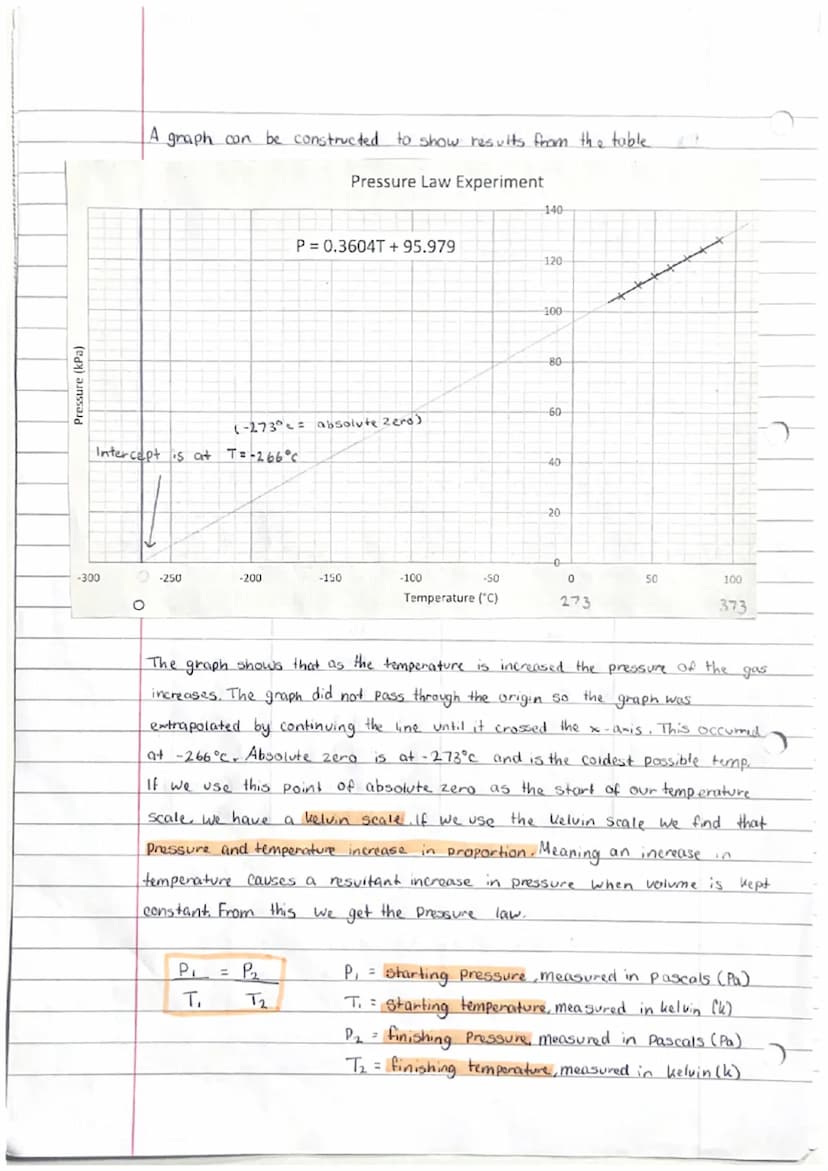 A graph can be constructed to show results from the table
Pressure Law Experiment
P = 0.3604T + 95.979
Pressure (kPa)
140
120
100
80
60
40
20
0
(-273°c = absolute zero)
Intercept is at T = -266°c
-300 -250 -200 -150 -100 -50 0 50 100
Temperature (°C)
0 273 373
The graph shows that as the temperature is increased the pressure of the gas
increases. The graph did not pass through the origin so the graph was
extrapolated by continuing the line until it crossed the x-axis. This occurred
at -266°c. Absolute zero is at -273°c and is the coldest possible temp.
If we use this point of absolute zero as the start of our temperature
scale, we have a kelvin scale. If we use the kelvin scale we find that
pressure and temperature increase in proportion. Meaning an increase in
temperature causes a resultant increase in pressure when volume is kept
constant. From this we get the pressure law.
P₁ = P₂
T₁ T₂
P₁ = starting pressure, measured in pascals (Pa)
T₁ = starting temperature, measured in kelvin (k)
P₂ = finishing pressure, measured in pascals (Pa)
T₂ = finishing temperature, measured in kelvin (k)